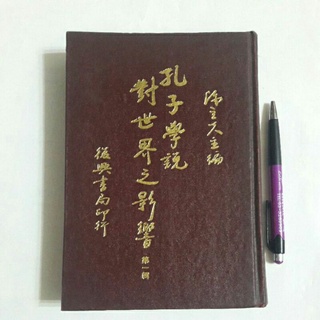 陳立夫主編
孔子學說
對世界之影響 第一輯
復興書局印行